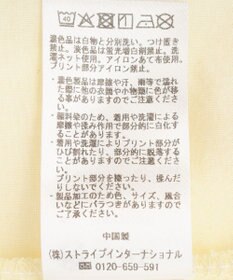 40
濃色品は白物と分別洗い。つけ置き
禁止。淡色品は蛍光増白剤禁止。洗
濯ネット使用。アイロンあて布使用。
プリント部分アイロン禁止。
・濃色製品は摩擦や汗、雨等で濡れ
た際に他の衣類や小物類に色が移
る事がありますのでご注意くださ
い。
・顔料染のため、着用や洗濯による
摩擦や揉み作用で部分的に白化す
ることがあります。
・着用や洗濯によりプリント部分が
ひび割れたり、部分的に脱落する
ことがあります。
プリント部分を擦ったり、揉んだ
りしないでください。
・製品加工のため色、サイズ、風合
いなどにバラつきがありますので
ご了承ください。
中国製
(株)ストライプインターナショナル
0120-659-591